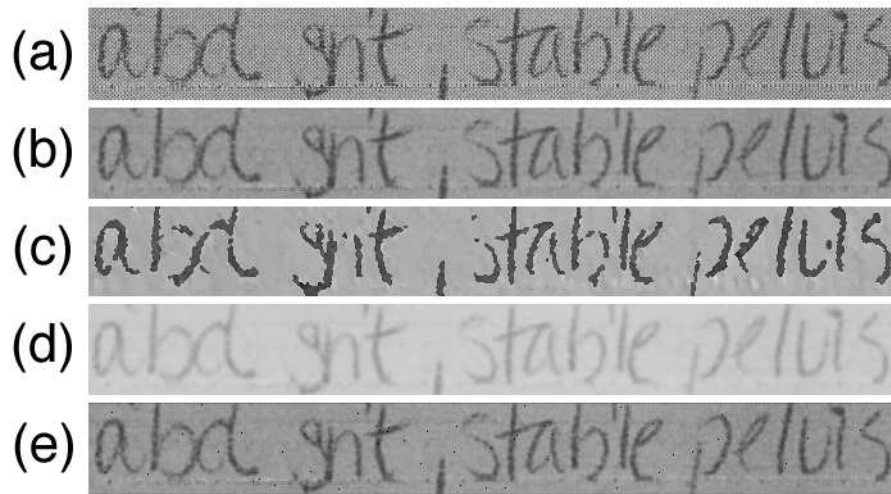 (a) abd gnt, stable pelvis
(b) abd gnt, stable pelvis
(c) abd gnt, stable pelvis
(d) abd gnt, stable pelvis
(e) abd gnt, stable pelvis